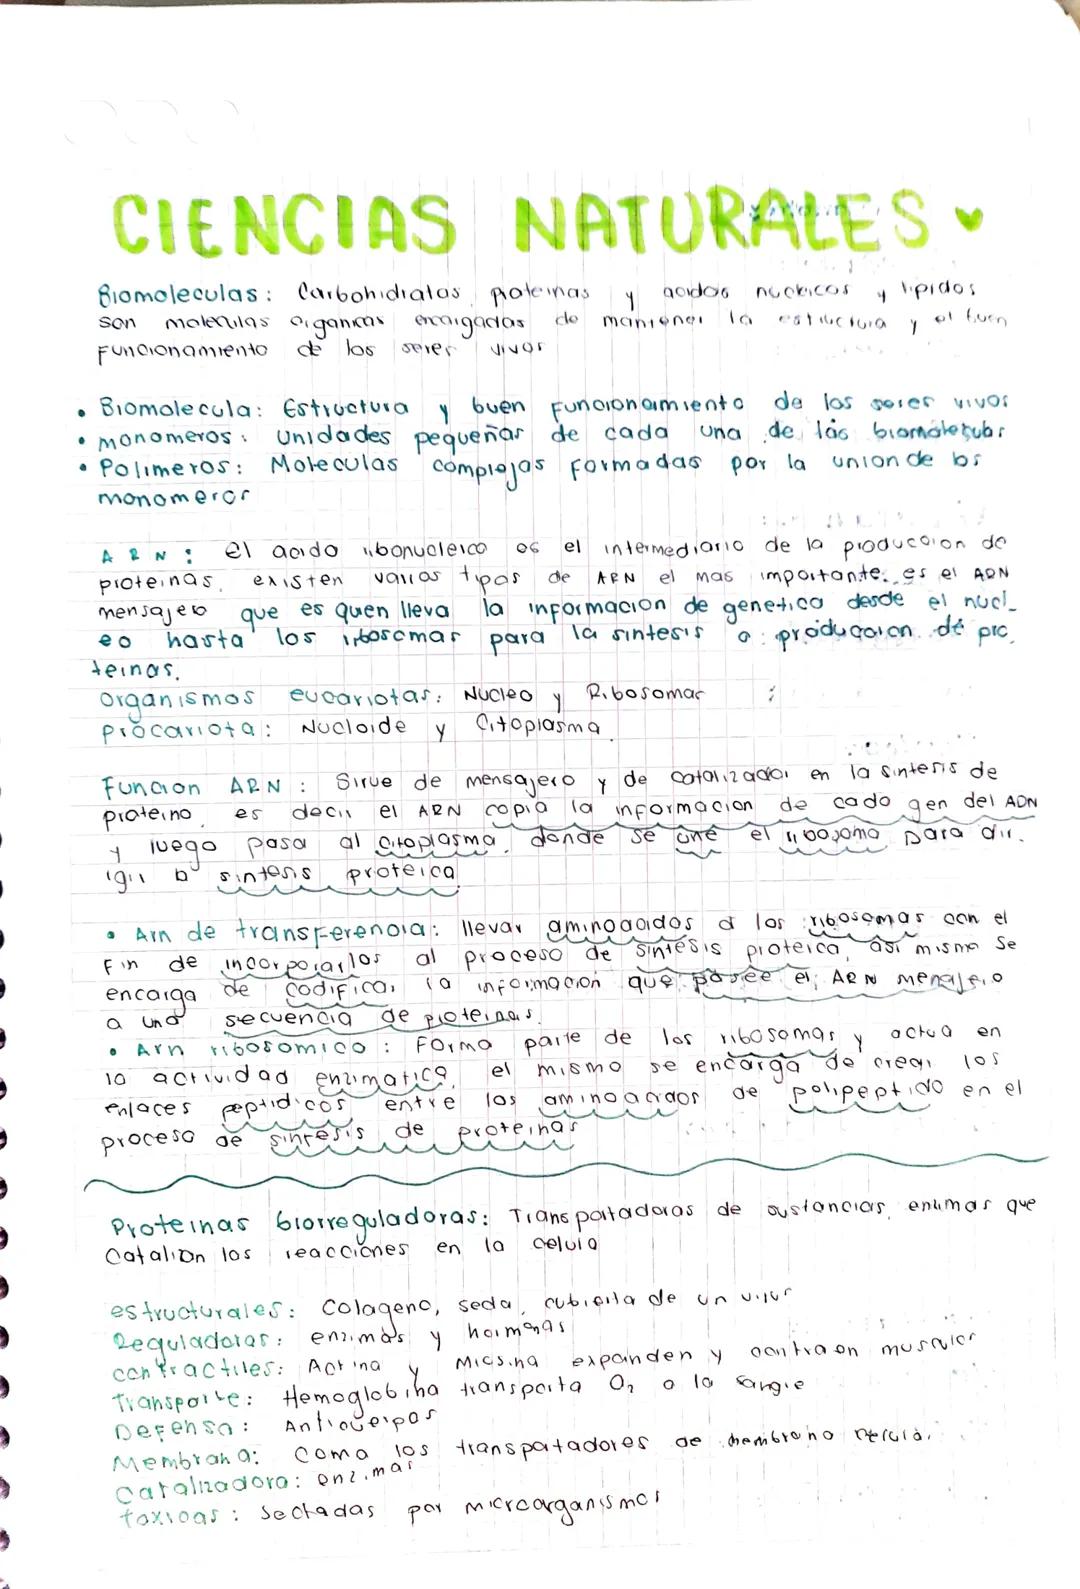 CIENCIAS NATURALES
Biomoleculas: Carbohidratos proteinas y acidos nucleicos y lipidos
son moleculas organicas encargadas de mantener la estructura y el buen
funcionamiento de los seres vivos
• Biomolecula: Estructura y buen funcionamiento de los seres vivos
• monomeros: unidades pequeñas de cada una de las biomoleculas
• Polimeros: Moleculas complejas formadas por la union de los
monomeros
ARN: el acido ribonucleico es el intermediario de la produccion de
proteinas, existen varios tipos de ARN el mas importante es el ARN
mensajero que es quen lleva la informacion de genetica desde el nucl_
eo hasta los ribosomas para la sintesis o produccion de pro
teinas.
Organismos eucariotas: Nucleo y Ribosomas
procariota: Nucloide y Citoplasma
Funcion ARN: Sirve de mensajero y de catalizador en la sintesis de
proteina, es decir el ARN copia la informacion de cada gen del ADN
y luego pasa al citoplasma, donde se une el ribosoma para dir
igir la sintesis proteica
• Arn de transferencia: llevar aminoacidos a los ribosomas con el
fin de incorporarlos al proceso de sintesis proteica, asi mismo se
encarga de codificar la informacion que posee el ARN
a una secuencia de proteinas.
• Arn ribosomico: Forma parte de los ribosomas y actua en
la actividad enzimatica, el mismo se encarga de crear los
enlaces peptidicos entre los aminoacidos de polipeptido en el
proceso de sintesis de proteinas
Proteinas biorreguladoras: Transportadoras de sustancias, que
los reacciones en la celula
estructurales: Colageno, seda, cubierta de un virus
Reguladoras: enzimas y hormonas
contractiles: Actina y Miosina expanden y contraen
Transporte: Hemoglobina transporta O₂ a la sangre
Defensa: Anticuerpos
Membrana: Como los transpotadores de membrana
Catalizadora: enzimas
toxicas: por microorganismos